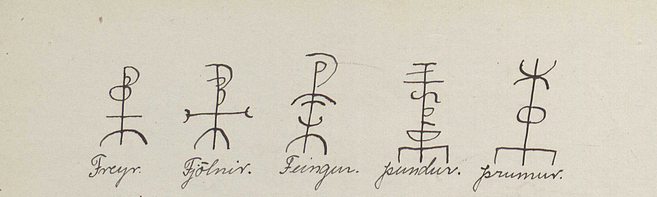 Freyr. Fjölnir. Feingur. þundur. þrumur.